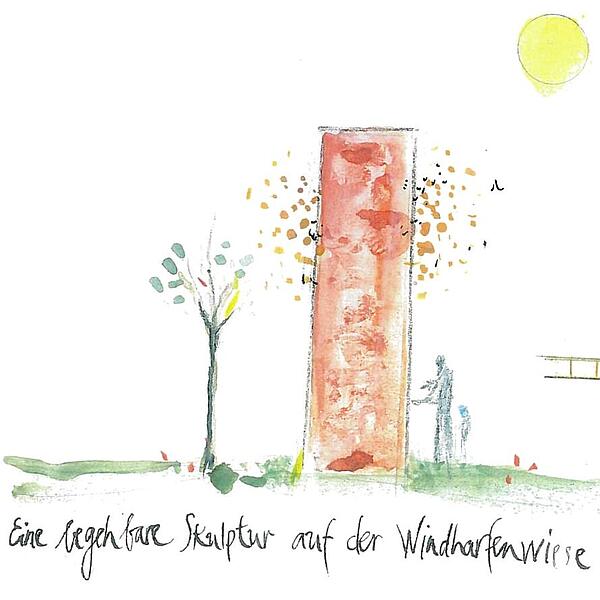 Eine begehbare Skulptur auf der Windharfenwiese